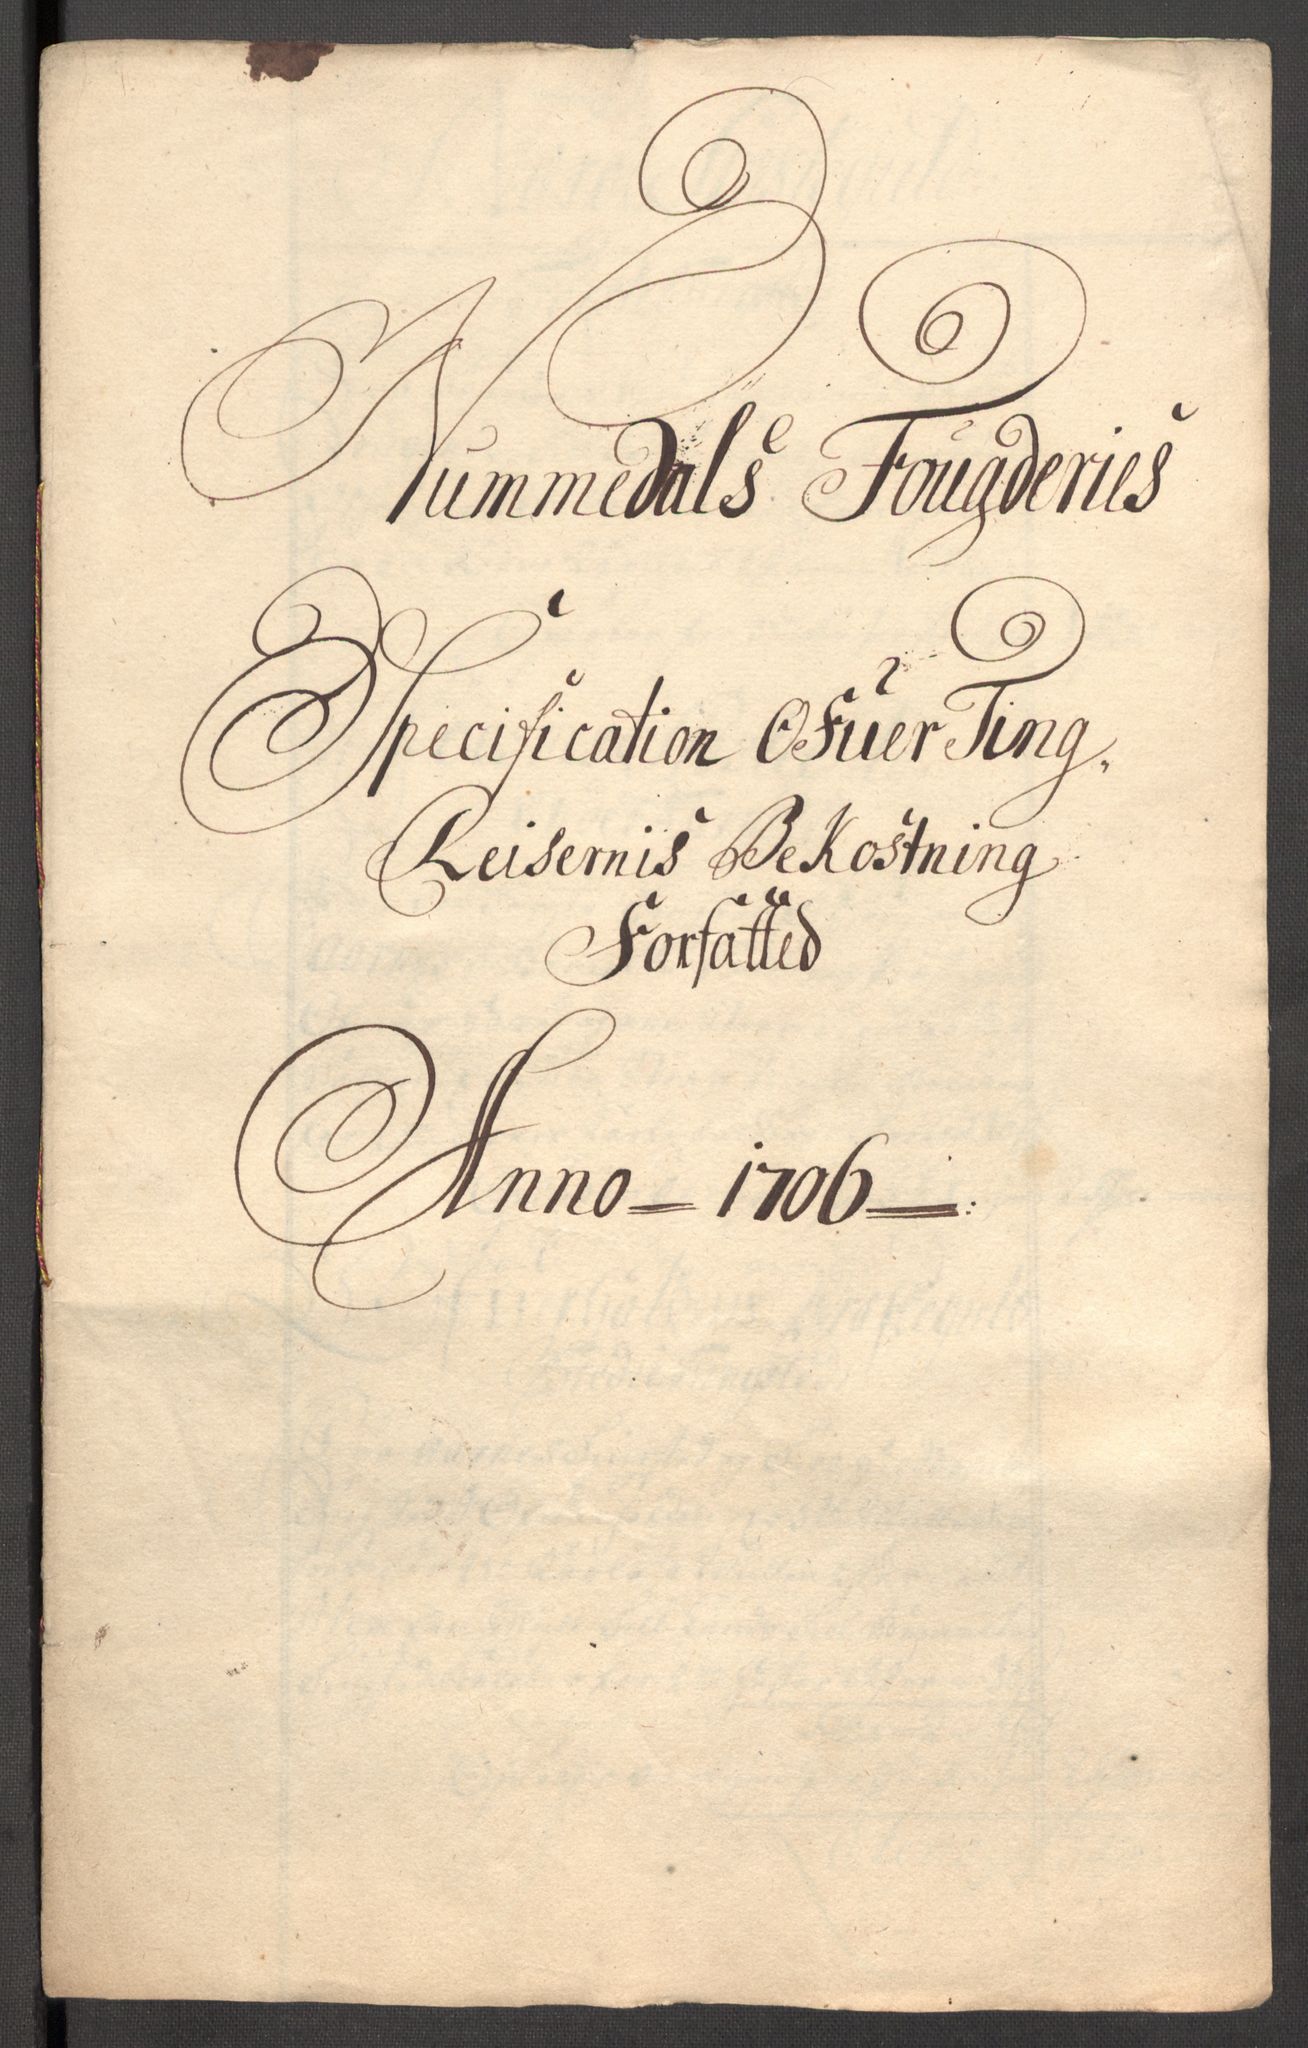 Nummedals Fougderies
Specification Ofuer Ting,
Reisernis Bekostning
Forfatted
Anno 1706